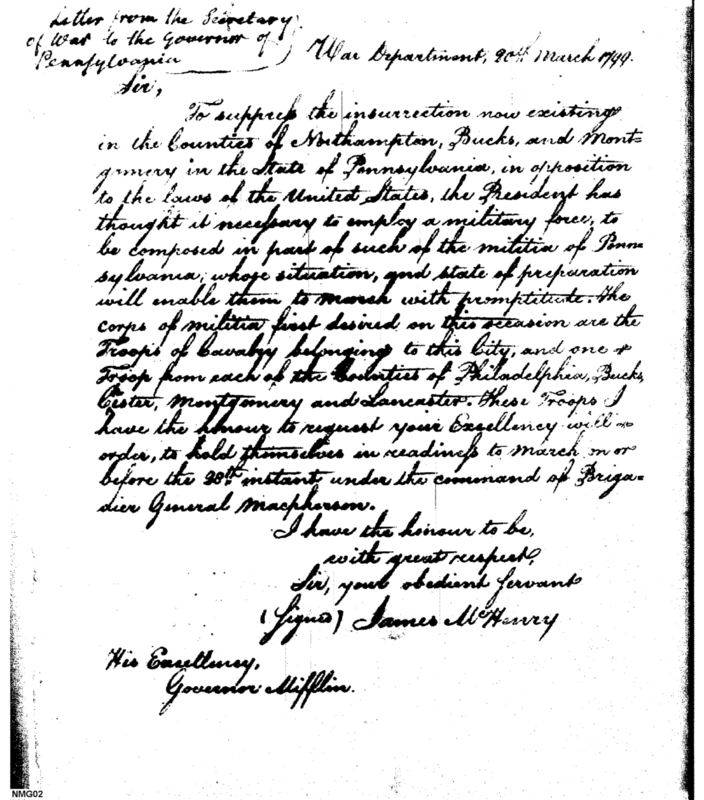 Letter from the Secretary
of War to the Governor of
Pennsylvania
War Department, 20th March 1799.
Sir,
To suppress the insurrection now existing
in the Counties of Northampton, Bucks, and Mont-
gomery in the State of Pennsylvania, in opposition
to the laws of the United States, the President has
thought it necessary to employ a military force, to
be composed in part of such of the militia of Penn-
sylvania, whose situation, and state of preparation
will enable them to march with promptitude. The
corps of militia first desired on this occasion are the
Troops of Cavalry belonging to this City, and one
Troop from each of the Counties of Philadelphia, Bucks,
Chester, Montgomery and Lancaster. These Troops I
have the honour to request your Excellency will
order, to hold themselves in readiness to march on or
before the 28th instant under the command of Briga-
dier General Macpherson.
I have the honour to be,
with great respect,
Sir, your obedient Servant
(Signed) James McHenry
His Excellency,
Governor Mifflin.
NMG02